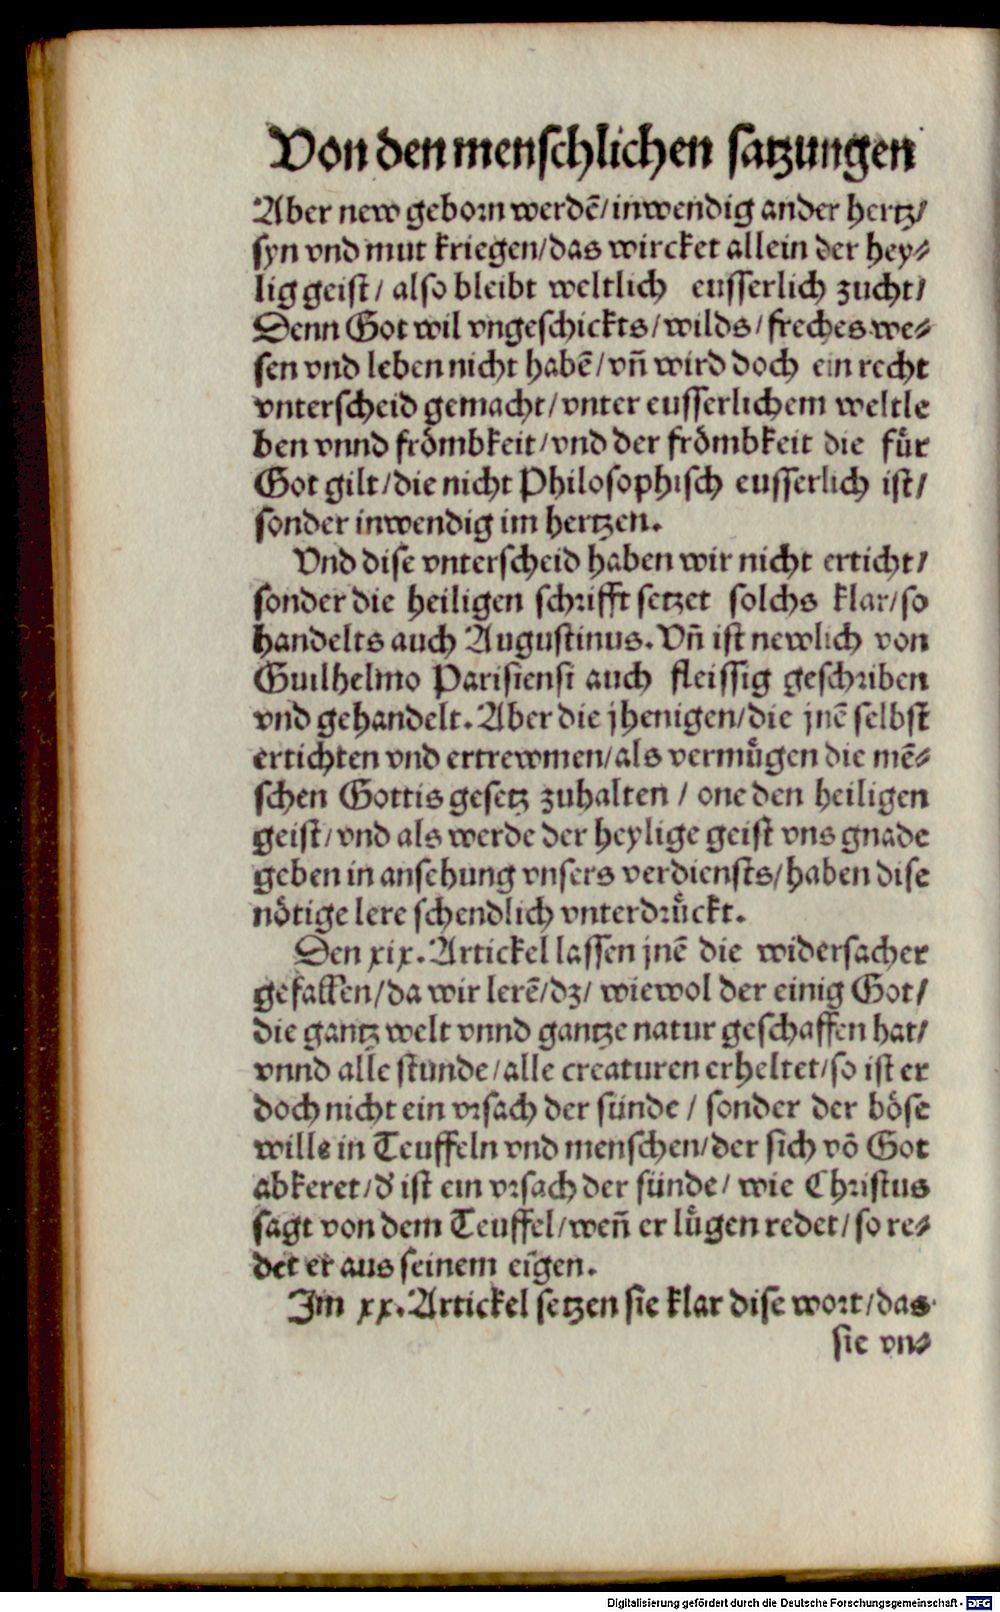 Von den menschlichen satzungen
Aber new geborn werdē/ inwendig ander hertz/
syn vnd mut kriegen/ das wircket allein der hey⸗
lig geist/ also bleibt weltlich eusserlich zucht/
Denn Got wil vngeschickts/ wilds/ freches we⸗
sen vnd leben nicht habē/ vñ wird doch ein recht
vnterscheid gemacht/ vnter eusserlichem weltle
ben vnnd frömbkeit/ vnd der frömbkeit die fuͤr
Got gilt/ die nicht Philosophisch eusserlich ist/
sonder inwendig im hertzen.
Vnd dise vnterscheid haben wir nicht erticht/
sonder die heiligen schrifft setzet solchs klar/ so
handelts auch Augustinus. Vñ ist newlich von
Guilhelmo Parisiensi auch fleissig geschriben
vnd gehandelt. Aber die jhenigen/ die jnē selbst
ertichten vnd ertrewmen/ als vermuͤgen die mē⸗
schen Gottis gesetz zuhalten / one den heiligen
geist/ vnd als werde der heylige geist vns gnade
geben in ansehung vnsers verdiensts/ haben dise
nötige lere schendlich vnterdruͤckt.
Den xix. Artickel lassen jnē die widersacher
gefallen/ da wir lerē/ dz/ wiewol der einig Got/
die gantz welt vnnd gantze natur geschaffen hat/
vnnd alle stunde/ alle creaturen erheltet/ so ist er
doch nicht ein vrsach der sünde / sonder der böse
wille in Teuffeln vnd menschen/ der sich vō Got
abkeret/ d' ist ein vrsach der sünde/ wie Christus
sagt von dem Teuffel/ weñ er luͤgen redet/ so re⸗
det er aus seinem eigen.
Im xx. Artickel setzen sie klar dise wort/ das
sie vn⸗
Digitalisierung gefördert durch die Deutsche Forschungsgemeinschaft - DFG